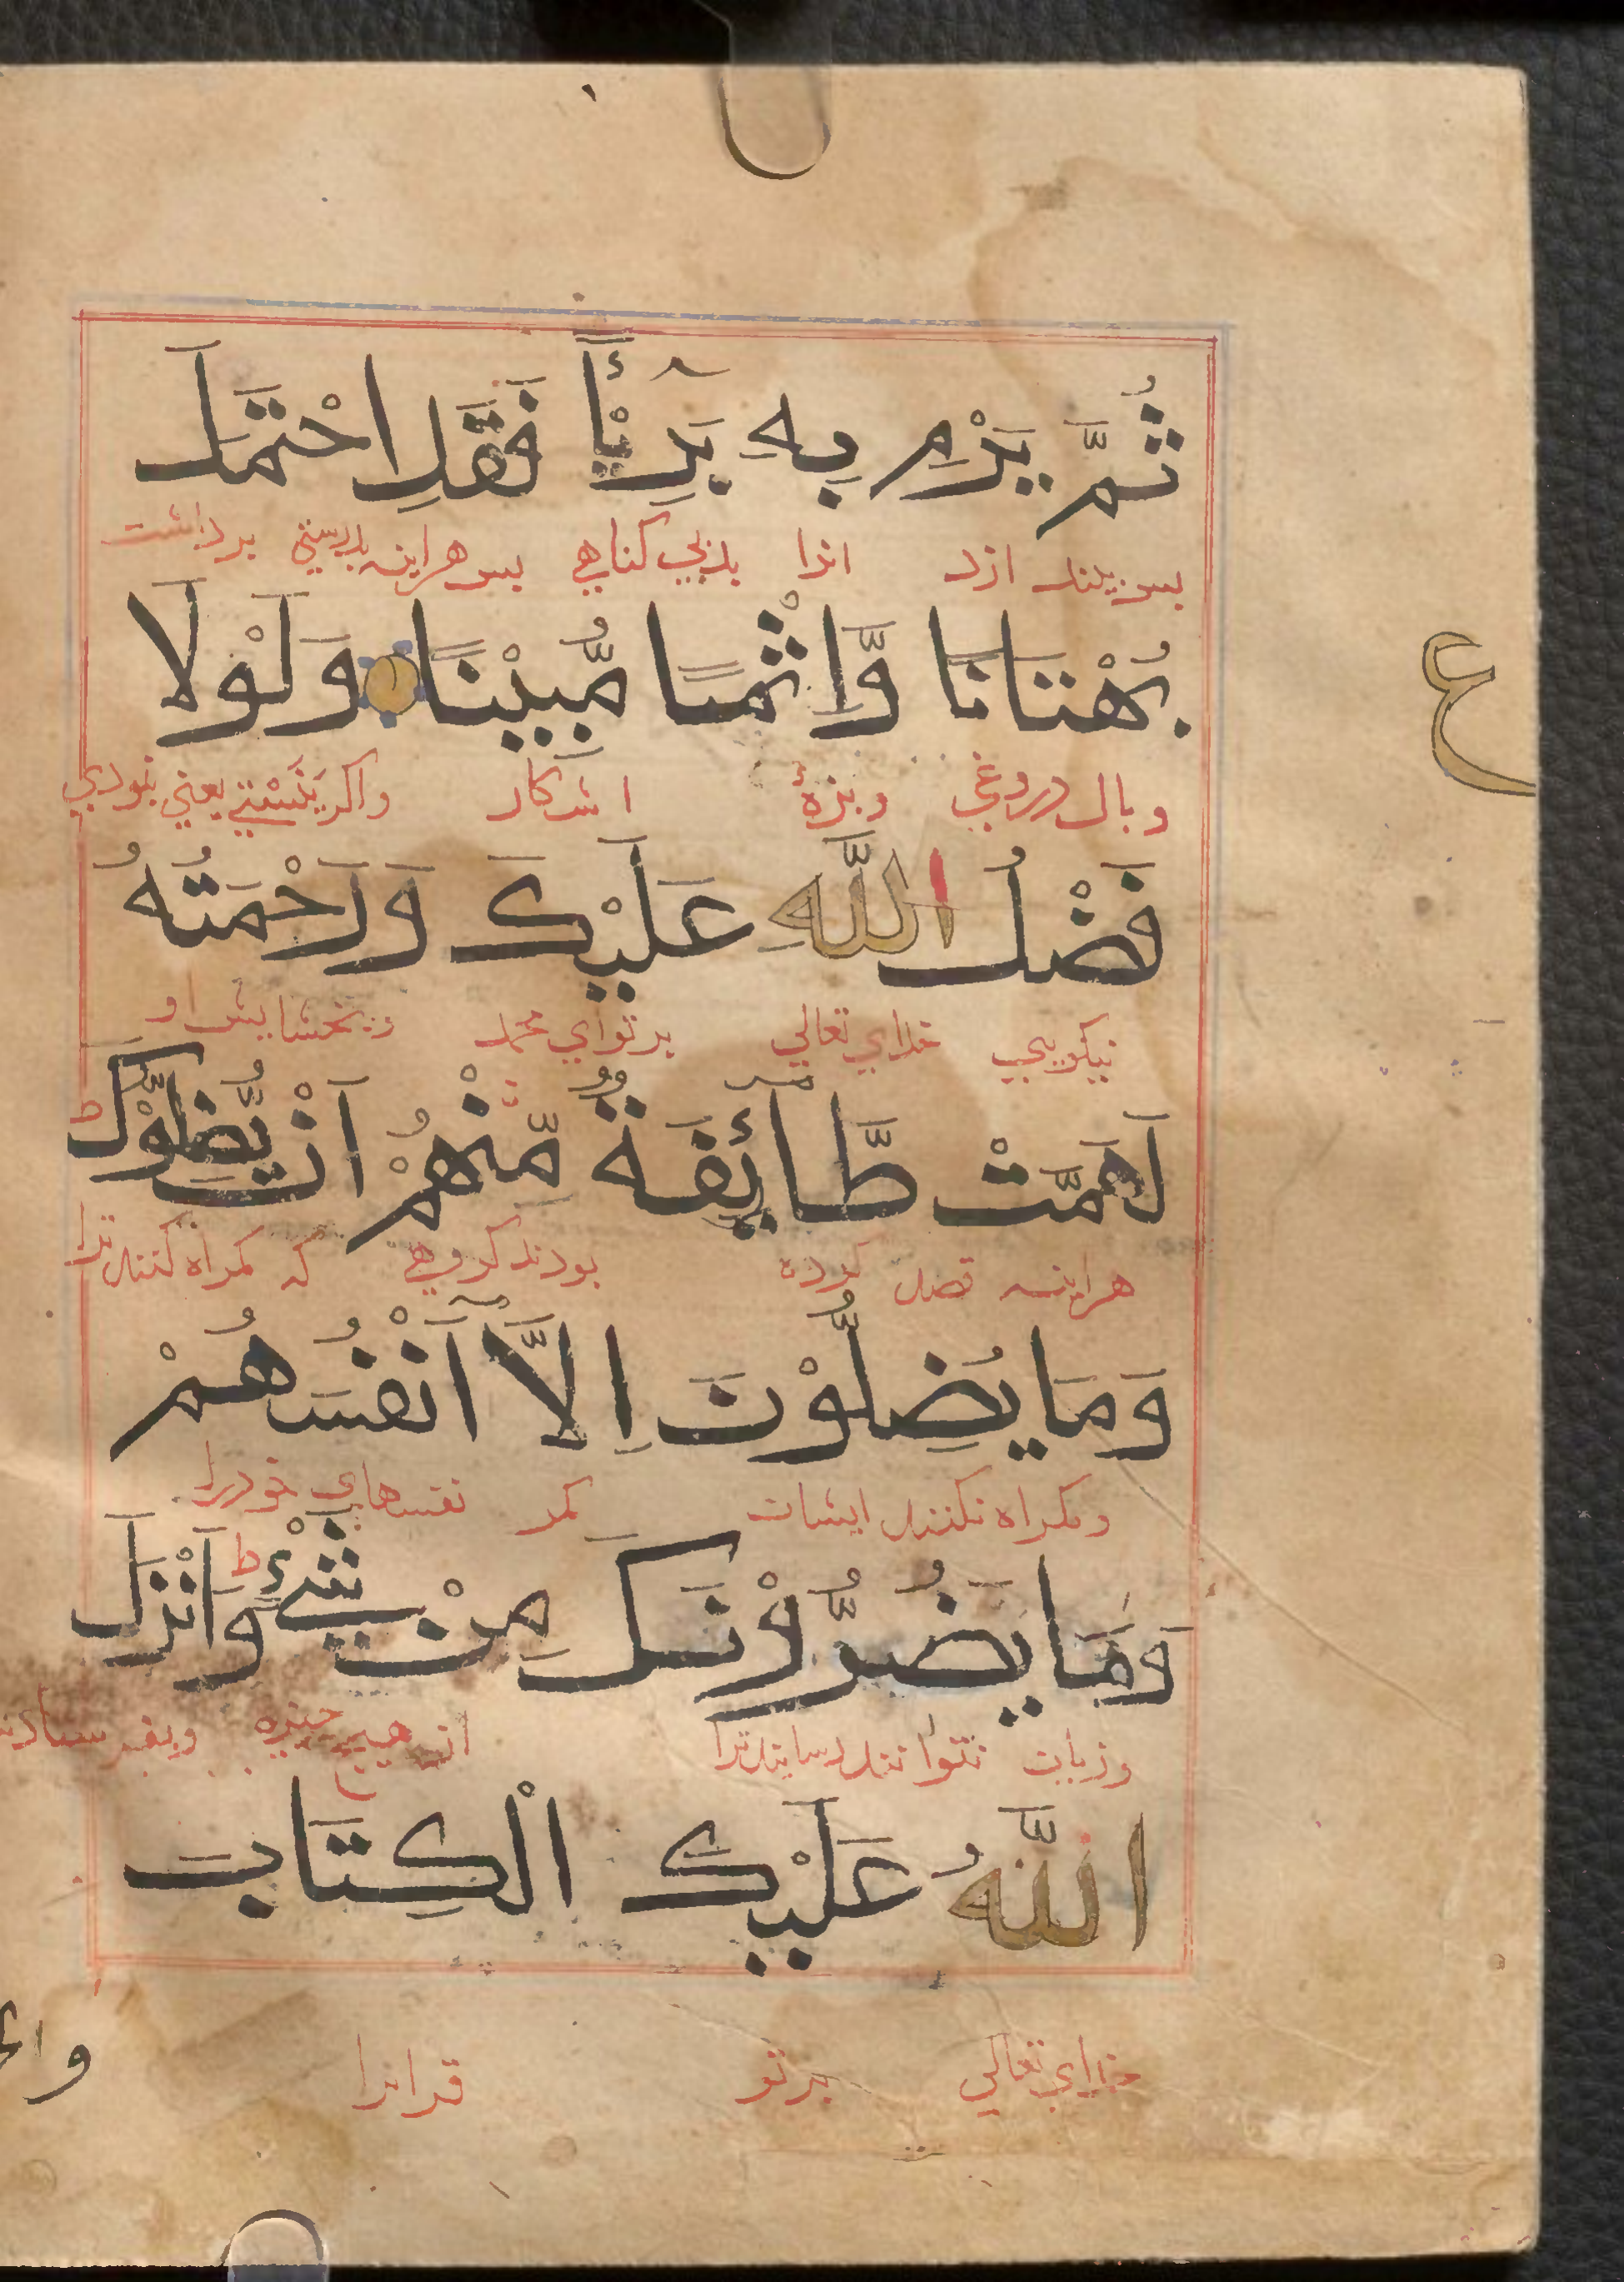 ثُمَّ يَرْمِ بِهِ بَرِيْٓئًا فَقَدِ احْتَمَلَ
بس بزند ازد انرا بدبی کناهی بس هراینه بدرستی برداشت
بُهْتَانًا وَّاِثْمًا مُّبِيْنًا وَلَوْلَا
ع
وبال دروغی وبزهٔ اشکار واکر نیستی یعنی نبودی
فَضْلُ اللّٰهِ عَلَيْكَ وَرَحْمَتُهُ
نیکویی خدای تعالی بر تو ای محمد وبخشایش او
لَهَمَّتْ طَّآئِفَةٌ مِّنْهُمْ اَنْ يُّضِلُّوْكَ ط
هراینه قصد کرده بودند کروهی که کمراه کنند ترا
وَمَا يُضِلُّوْنَ اِلَّآ اَنْفُسَهُمْ
وکمراه نکنند ایشان مکر نفسهای خودرا
وَمَا يَضُرُّوْنَكَ مِنْ شَيْءٍ ط وَاَنْزَلَ
وزیان نتوانند رسانند ترا از هیچ چیزه وبفرستاد
اللّٰهُ عَلَيْكَ الْكِتَابَ
خدای تعالی بر تو قرانرا